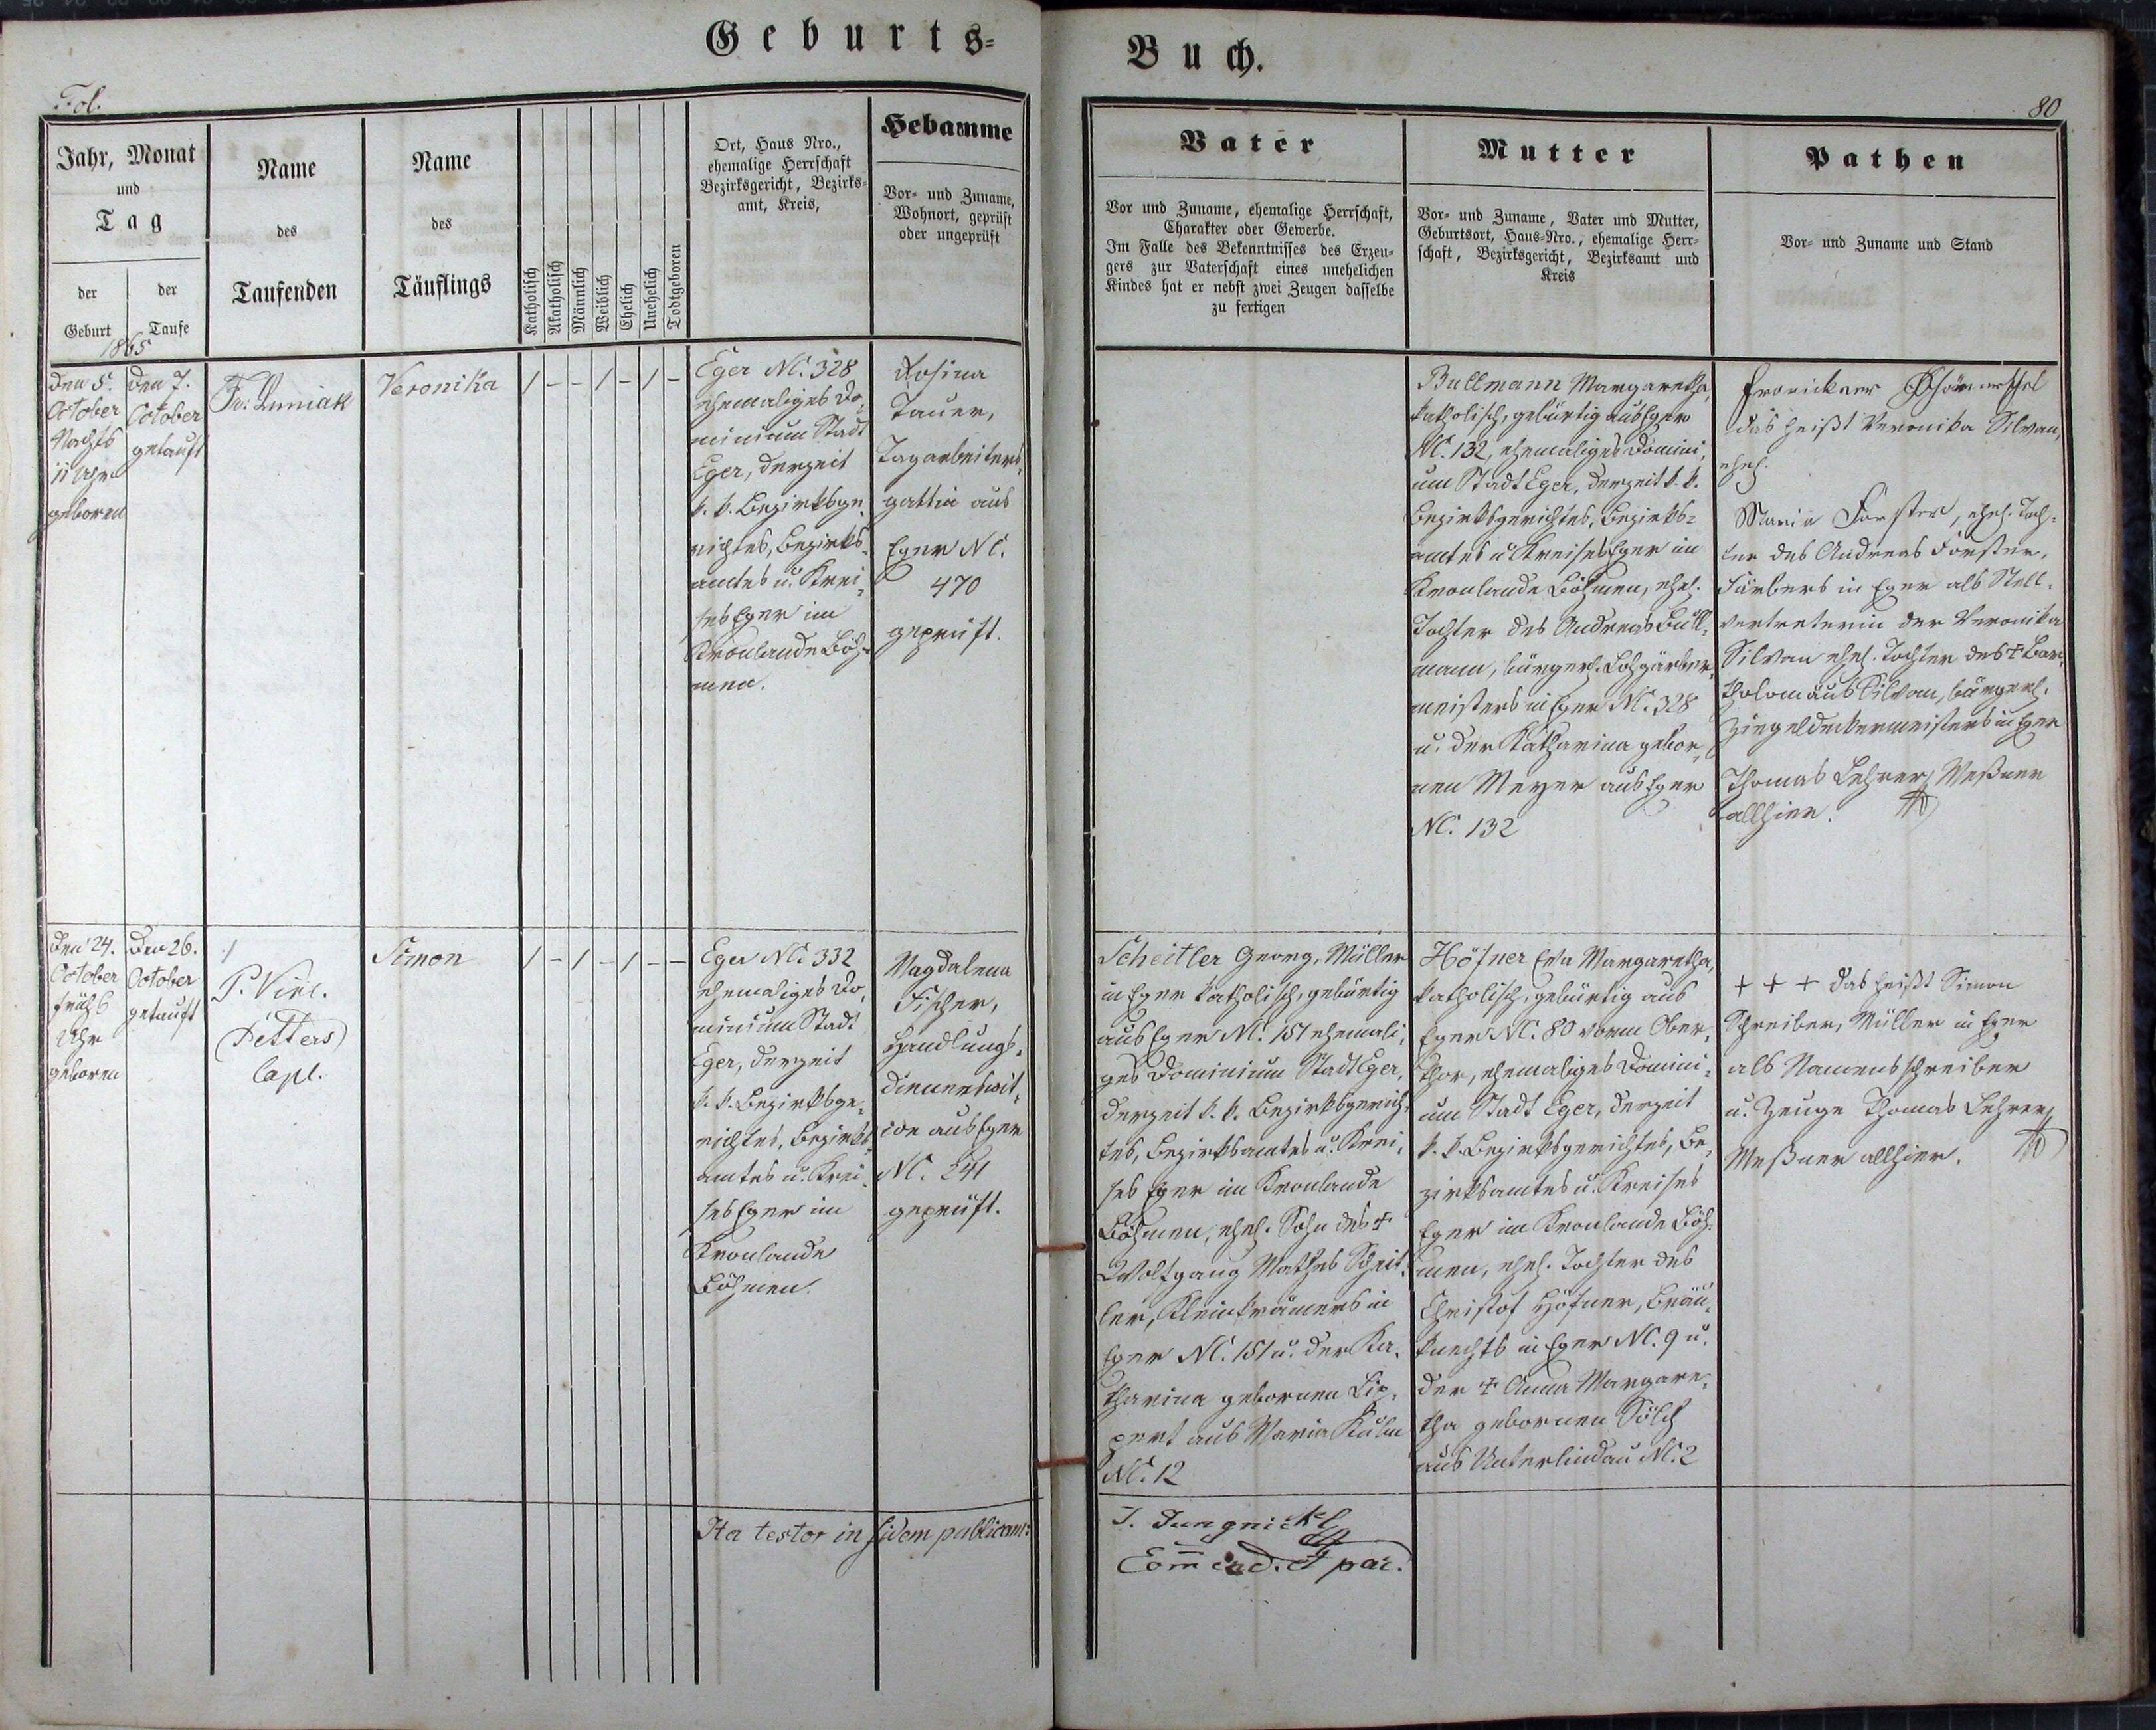 Geburts-
Buch.
Fol.
80
Jahr, Monat
und
Tag
der
Geburt
der
Taufe
1865
Name
des
Taufenden
Name
des
Täuflings
Katholisch
Akatholisch
Männlich
Weiblich
Ehelich
Unehelich
Todtgeboren
Ort, Haus Nro.,
ehemalige Herrschaft
Bezirksgericht, Bezirks-
amt, Kreis,
Hebamme
Vor- und Zuname,
Wohnort, geprüft
oder ungeprüft
Vater
Vor und Zuname, ehemalige Herrschaft,
Charakter oder Gewerbe.
Im Falle des Bekenntnisses des Erzeu-
gers zur Vaterschaft eines unehelichen
Kindes hat er nebst zwei Zeugen dasselbe
zu fertigen
Mutter
Vor- und Zuname, Vater und Mutter,
Geburtsort, Haus-Nro., ehemalige Herr-
schaft, Bezirksgericht, Bezirksamt und
Kreis
Pathen
Vor- und Zuname und Stand
den 5.
October
Nachts
11 Uhr
geboren
den 7.
October
getauft
Veronika
/ - - / - / -
Eger NC. 328
ehemaliges Do-
minium Stadt
Eger, derzeit
k. k. Bezirksge-
richtes, Bezirks-
amtes u. Krei-
ses Eger im
Kronlande Böh-
men.
Rosina
Tauer,
Tagarbeiters-
gattin aus
Eger NC.
470
geprüft.
Bullmann Margaretha,
katholisch, gebürtig aus Eger
NC. 132, ehemaliges Domini-
um Stadt Eger, derzeit k. k.
Bezirksgerichtes, Bezirks-
amtes u. Kreises Eger im
Kronlande Böhmen, ehel.
Tochter des Andreas Bull-
mann, bürgerl. Lohgärber-
meisters in Eger NC. 328
u. der Katharina gebor-
nen Meyer aus Eger
NC. 132
das heißt Veronika Silvan,
ehel.
Maria Forster, ehel. Toch-
ter des Andreas Forster,
Färbers in Eger als Stell-
vertreterin der Veronika
Silvan ehel. Tochter des + Bar-
tholomäus Silvan, bürgerl.
Ziegeldeckermeisters in Eger
Thomas Lehrer, Meßner
allhier.
den 24.
October
früh 6
Uhr
geboren
den 26.
October
getauft
P. Vinc.
Petters
Capl.
Simon
/ - / - / - -
Eger NC. 332
ehemaliges Do-
minium Stadt
Eger, derzeit
k. k. Bezirksge-
richtes, Bezirks-
amtes u. Krei-
ses Eger im
Kronlande
Böhmen.
Magdalena
Fischer,
Handlungs-
dienerswit-
we aus Eger
NC. 341
geprüft.
Scheitler Georg, Müller
in Eger katholisch, gebürtig
aus Eger NC. 151 ehemali-
ges Dominium Stadt Eger,
derzeit k. k. Bezirksgerich-
tes, Bezirksamtes u. Krei-
ses Eger im Kronlande
Böhmen, ehel. Sohn des +
Wolfgang Mathes Scheit-
ler, Kleinkrämers in
Eger NC. 151 u. der Ka-
tharina gebornen Lip-
pert aus Maria Kulm
NC. 12
Höfner Eva Margaretha,
katholisch, gebürtig aus
Eger NC. 80 vorm Ober-
thor, ehemaliges Domini-
um Stadt Eger, derzeit
k. k. Bezirksgerichtes, Be-
zirksamtes u. Kreises
Eger im Kronlande Böh-
men, ehel. Tochter des
Christof Höfner, Bräu-
knechts in Eger NC. 9 u.
der + Anna Margare-
tha gebornen Sölch
aus Unterlindau NC. 2
+ + + das heißt Simon
Schreiber, Müller in Eger
als Namensschreiber
u. Zeuge Thomas Lehrer,
Meßner allhier.
Ita testor in fidem publicam:
J. Jungnickl
Commend. et par.